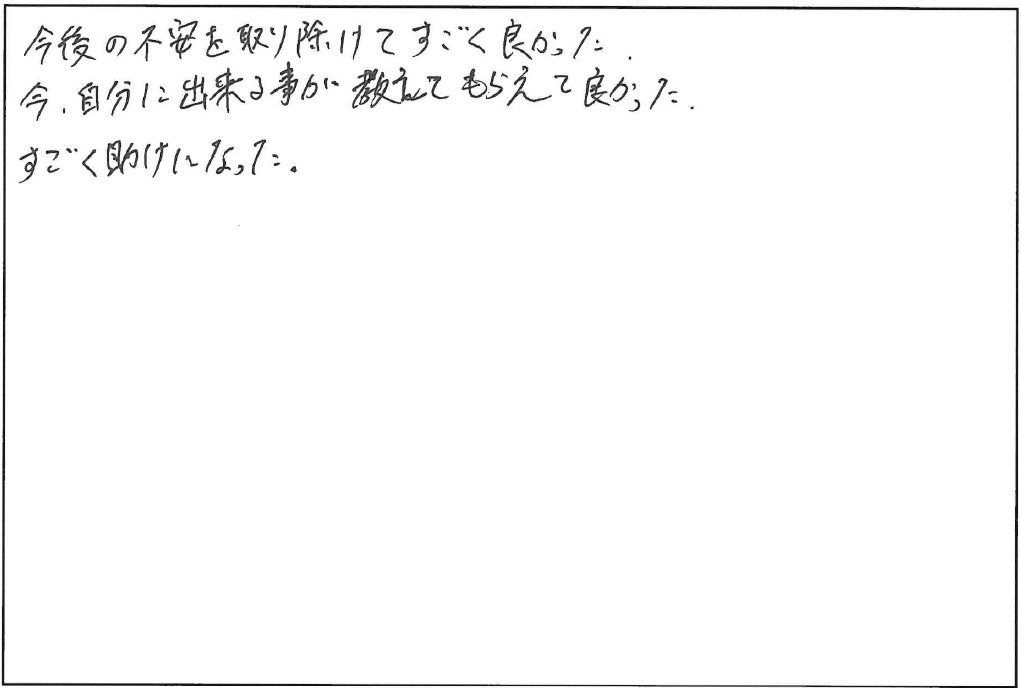 今後の不安を取り除けてすごく良かった.
今、自分に出来る事が教えてもらえて良かった.
すごく助けになった。